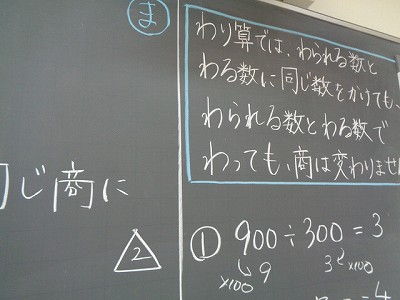 ま
わり算では、わられる数と
わる数に同じ数をかけても、
われる数とわる数で
わっても、商は変わりませ
同じ商に
2
① 900÷300=3
×100 9 3 ×100
4